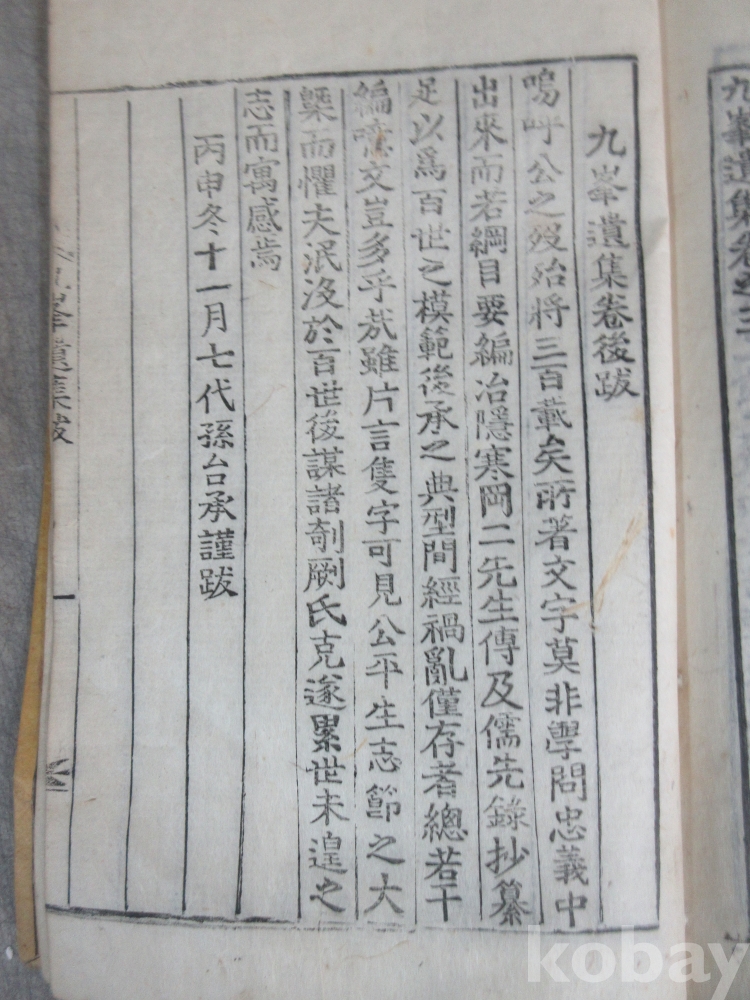 九峯遺集卷後跋
嗚呼公之歿殆將三百載矣所著文字莫非學問忠義中
出來而若綱目要編冶隱寒岡二先生傳及儒先錄抄纂
足以爲百世之模範後承之典型間經禍亂僅存者總若干
編噫文豈多乎哉雖片言隻字可見公平生志節之大
槩而懼夫泯沒於百世後謀諸剞劂氏克遂累世未遑之
志而寓感焉
丙申冬十一月七代孫台承謹跋
九峯遺集跋
一
九峯遺集卷之三
kobay